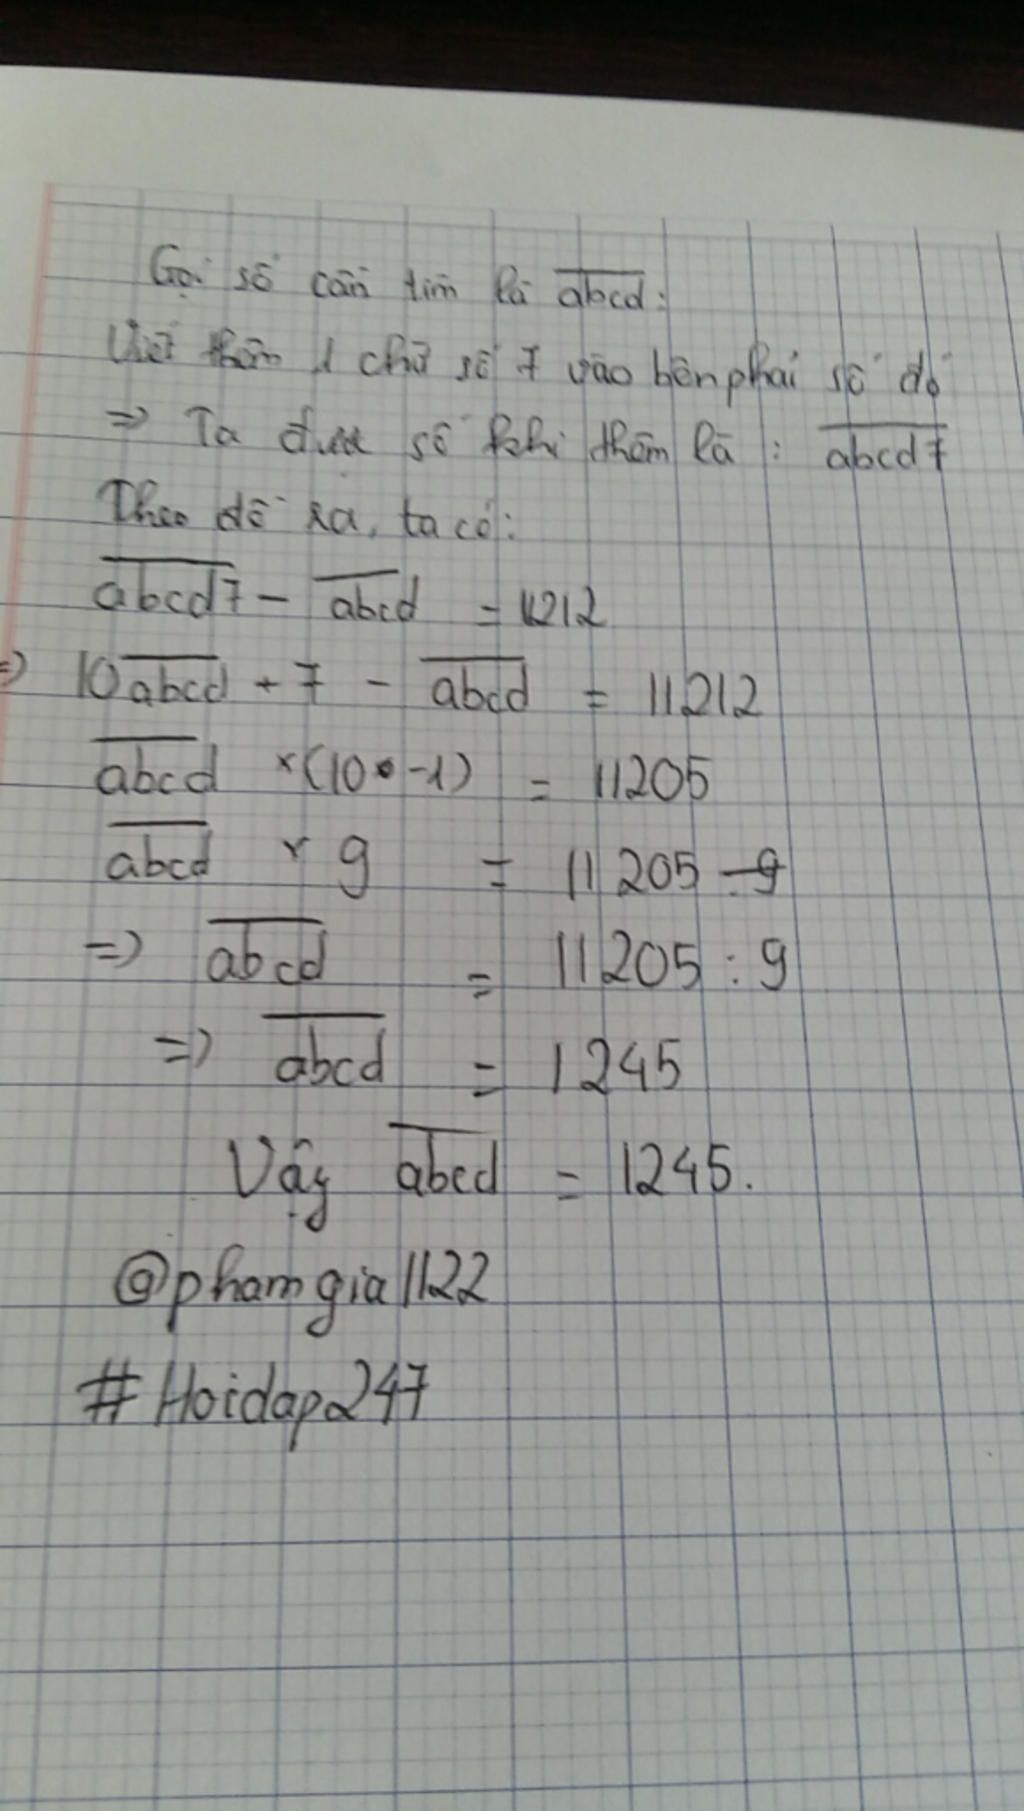 Gọi số cần tìm là abcd:
Viết thêm 1 chữ số 7 vào bên phải số đó
=> Ta được số khi thêm là : abcd7
Theo đề ra, ta có:
abcd7 - abcd = 11212
=> 10abcd + 7 - abcd = 11212
abcd × (10 - 1) = 11205
abcd × 9 = 11205
=> abcd = 11205 : 9
=> abcd = 1245
Vậy abcd = 1245.
@phamgia1122
#Hoidap247